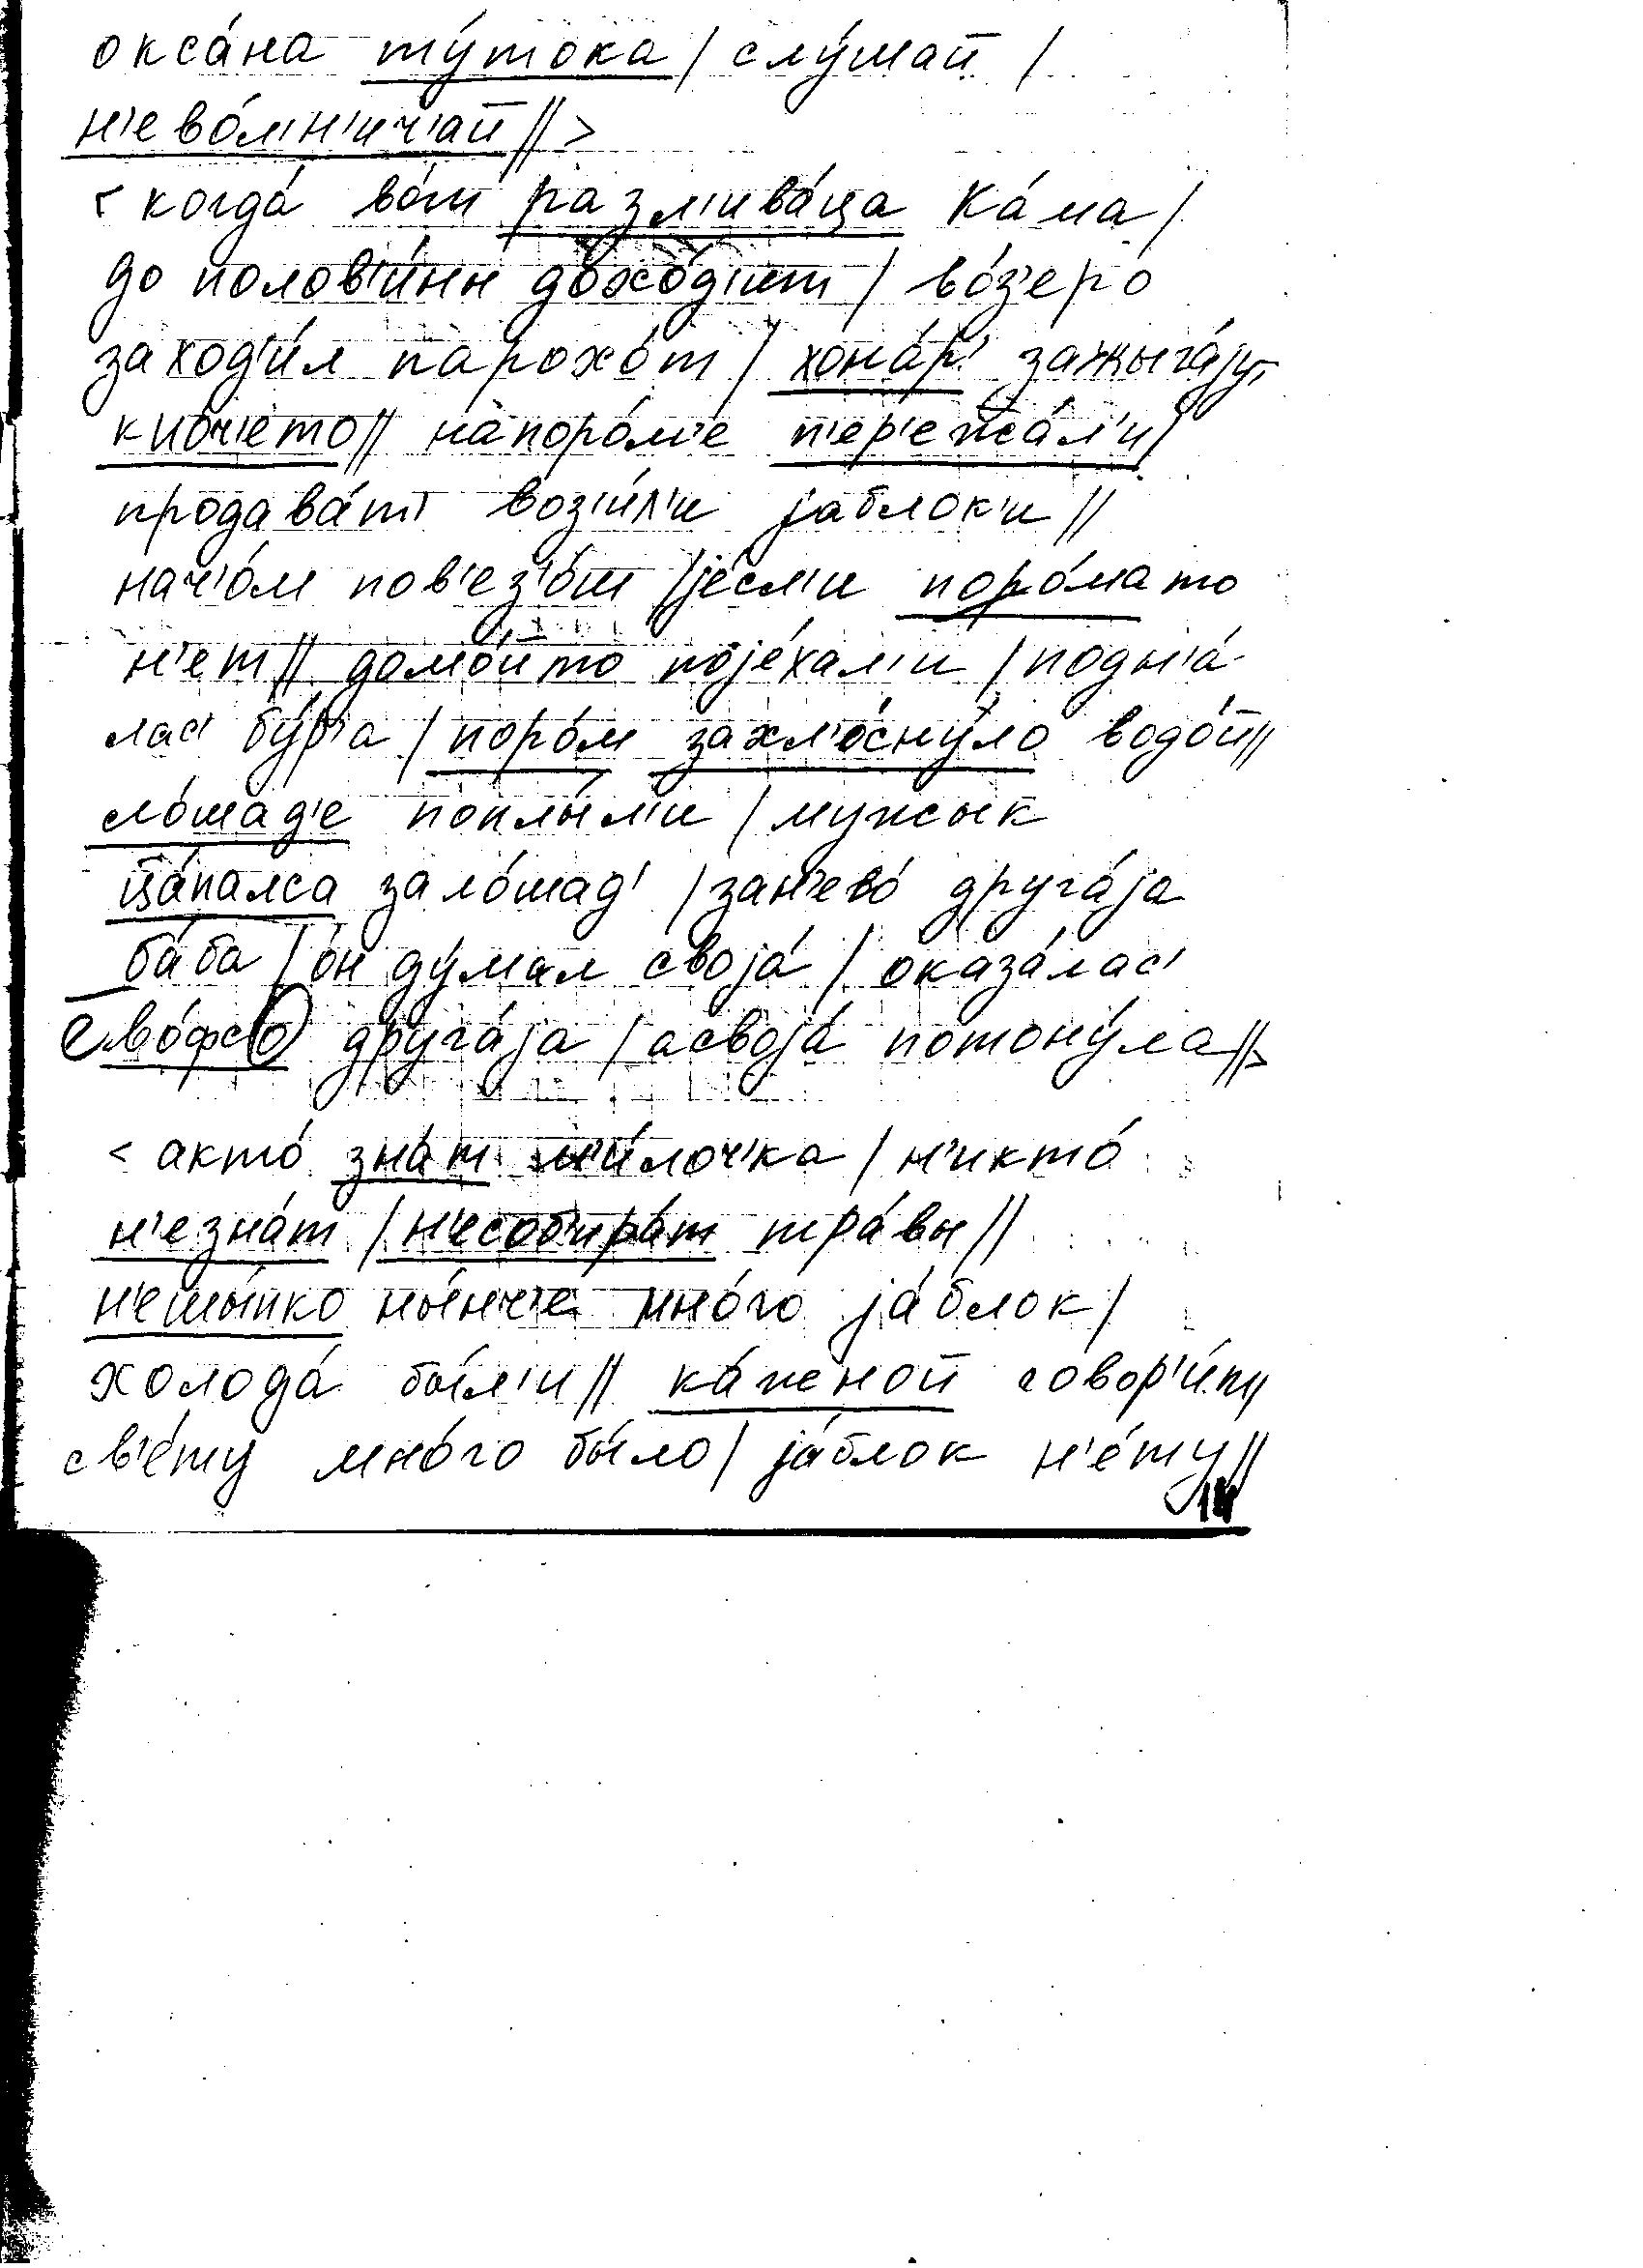 окса́на ту́тока / слу́шай /
н'ево́л'н'ич'ай // >
< когда́ во́т разл'ива́ца Ка́ма /
до полов'и́ны дохо́д'ит / во́з'еро
заход'и́л парохо́т / хона́р' зажыга́jут
к ноч'е́то // на поро́м'е п'ер'ежа́л'и /
продава́т' воз'и́л'и jаблок'и //
нач'о́м пов'ез'о́т / jе́сл'и поро́мато
н'ет // домо́йто поjе́хал'и / подн'а́-
лас' бу́р'а / поро́м захл'осну́ло водо́й //
сло́шад'е поплы́л'и / мужык
ца́палса зало́шад' / зан'ево́ друга́jа
ба́ба / о́н ду́мал своjа́ / оказа́лас'
во́фсо друга́jа / асвоjа́ потону́ла // >
< акто́ зна́т м'и́лоч'ка / н'икто́
н'езна́т / н'есоб'ира́т тра́вы //
н'ешы́пко ны́нч'е мно́го jа́блок /
холода́ бы́л'и // ка́жной говор'и́т //
св'е́ту мно́го бы́ло / jа́блок н'е́ту //